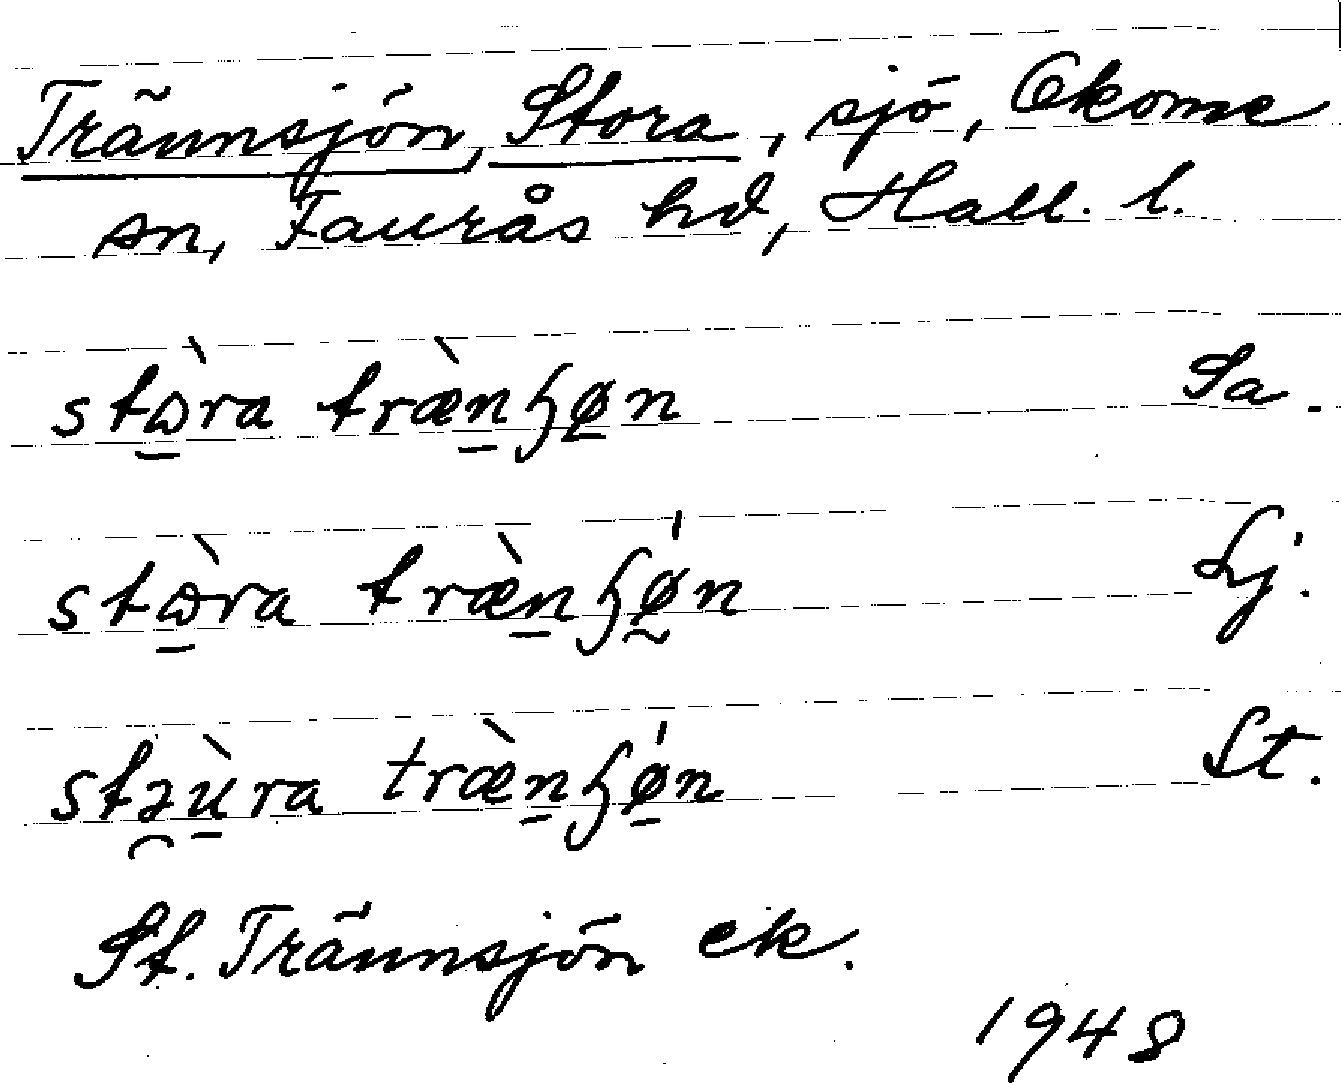 Trännsjön, Stora, sjö, Okome
sn, Faurås hd, Hall. l.
stɷ̀ra træ̀nɧøn Sa.
stɷ̀ra træ̀nɧǿn Lj.
stəùra træ̀nɧǿn St.
St. Trännsjön ek.
1948